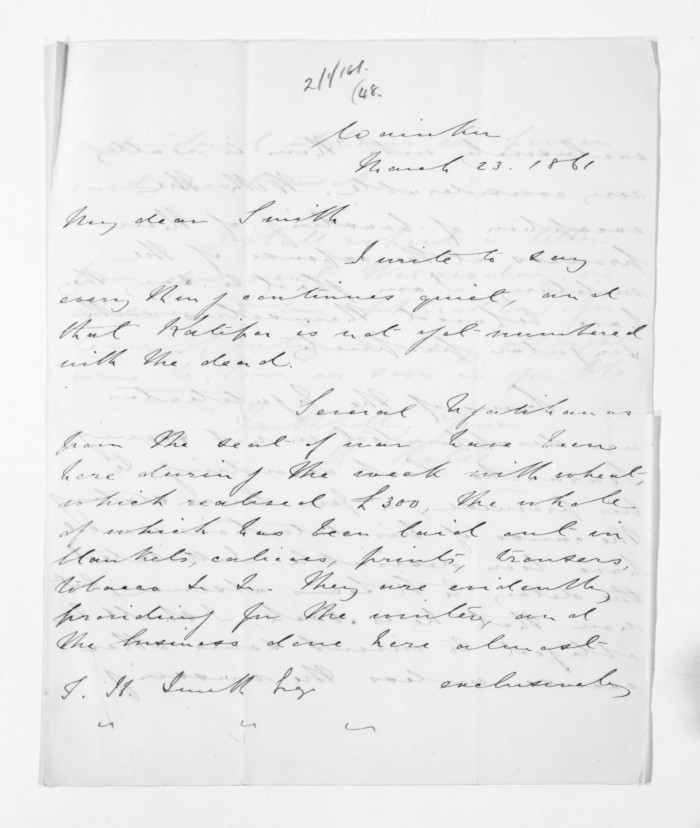 2/1/161.
(48.
March 23. 1861
My dear Smith
I write to say
every thing continues quiet, and
that Katipa is not yet numbered
with the dead.
Several
from the seat of war have been
here during the week with wheat,
which realised £300, the whole
of which has been laid out in
blankets, calicoes, prints, trousers,
tobacco &c &c. They are evidently
providing for the winter, and
the business done here almost
exclusively
Smith Esq
" " "